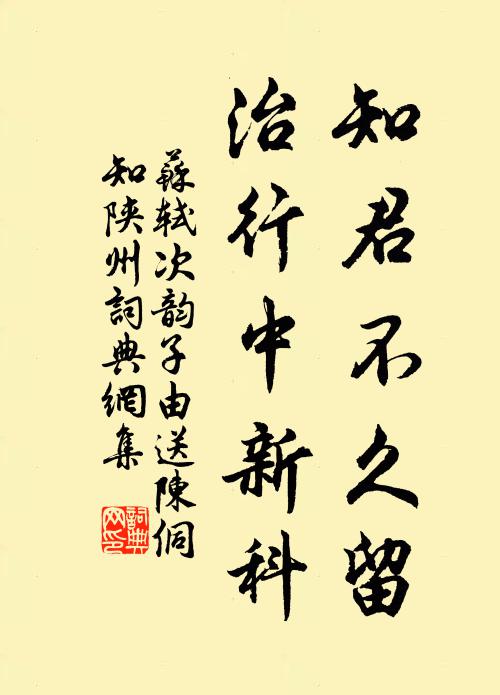 知君不久留
治行中新科
蘇軾次韵子由送陳侗
知陝州詞典網集
詞典網印